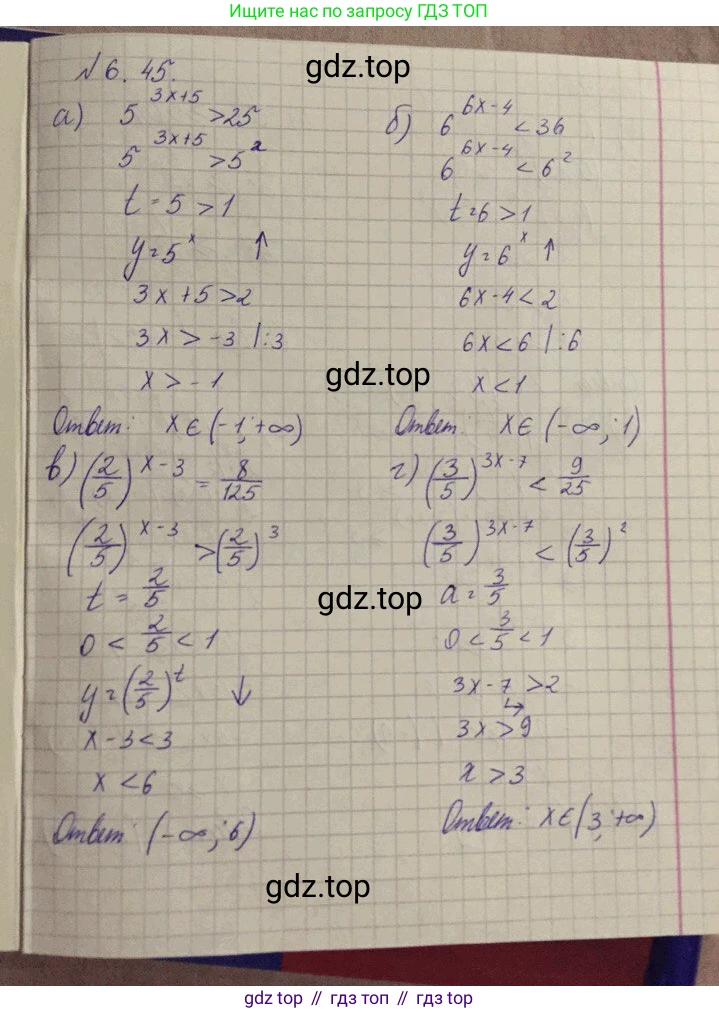 Ищите нас по запросу ГДЗ ТОП
gdz.top
№ 6. 45.
а) 5^(3x+5) > 25
5^(3x+5) > 5^2
t = 5 > 1
y = 5^x ↑
3x + 5 > 2
3x > -3 |:3
x > -1
Ответ: x ∈ (-1; +∞)
б) 6^(6x-4) < 36
6^(6x-4) < 6^2
t = 6 > 1
y = 6^x ↑
6x - 4 < 2
6x < 6 |:6
x < 1
gdz.top
Ответ: x ∈ (-∞; 1)
в) (2/5)^(x-3) = 8/125
(2/5)^(x-3) > (2/5)^3
t = 2/5
0 < 2/5 < 1
y = (2/5)^t ↓
x - 3 < 3
x < 6
Ответ: (-∞; 6)
г) (3/5)^(3x-7) < 9/25
(3/5)^(3x-7) < (3/5)^2
gdz.top
a = 3/5
0 < 3/5 < 1
3x - 7 > 2
3x > 9
x > 3
Ответ: x ∈ (3; +∞)
gdz.top
gdz top // гдз топ // gdz top